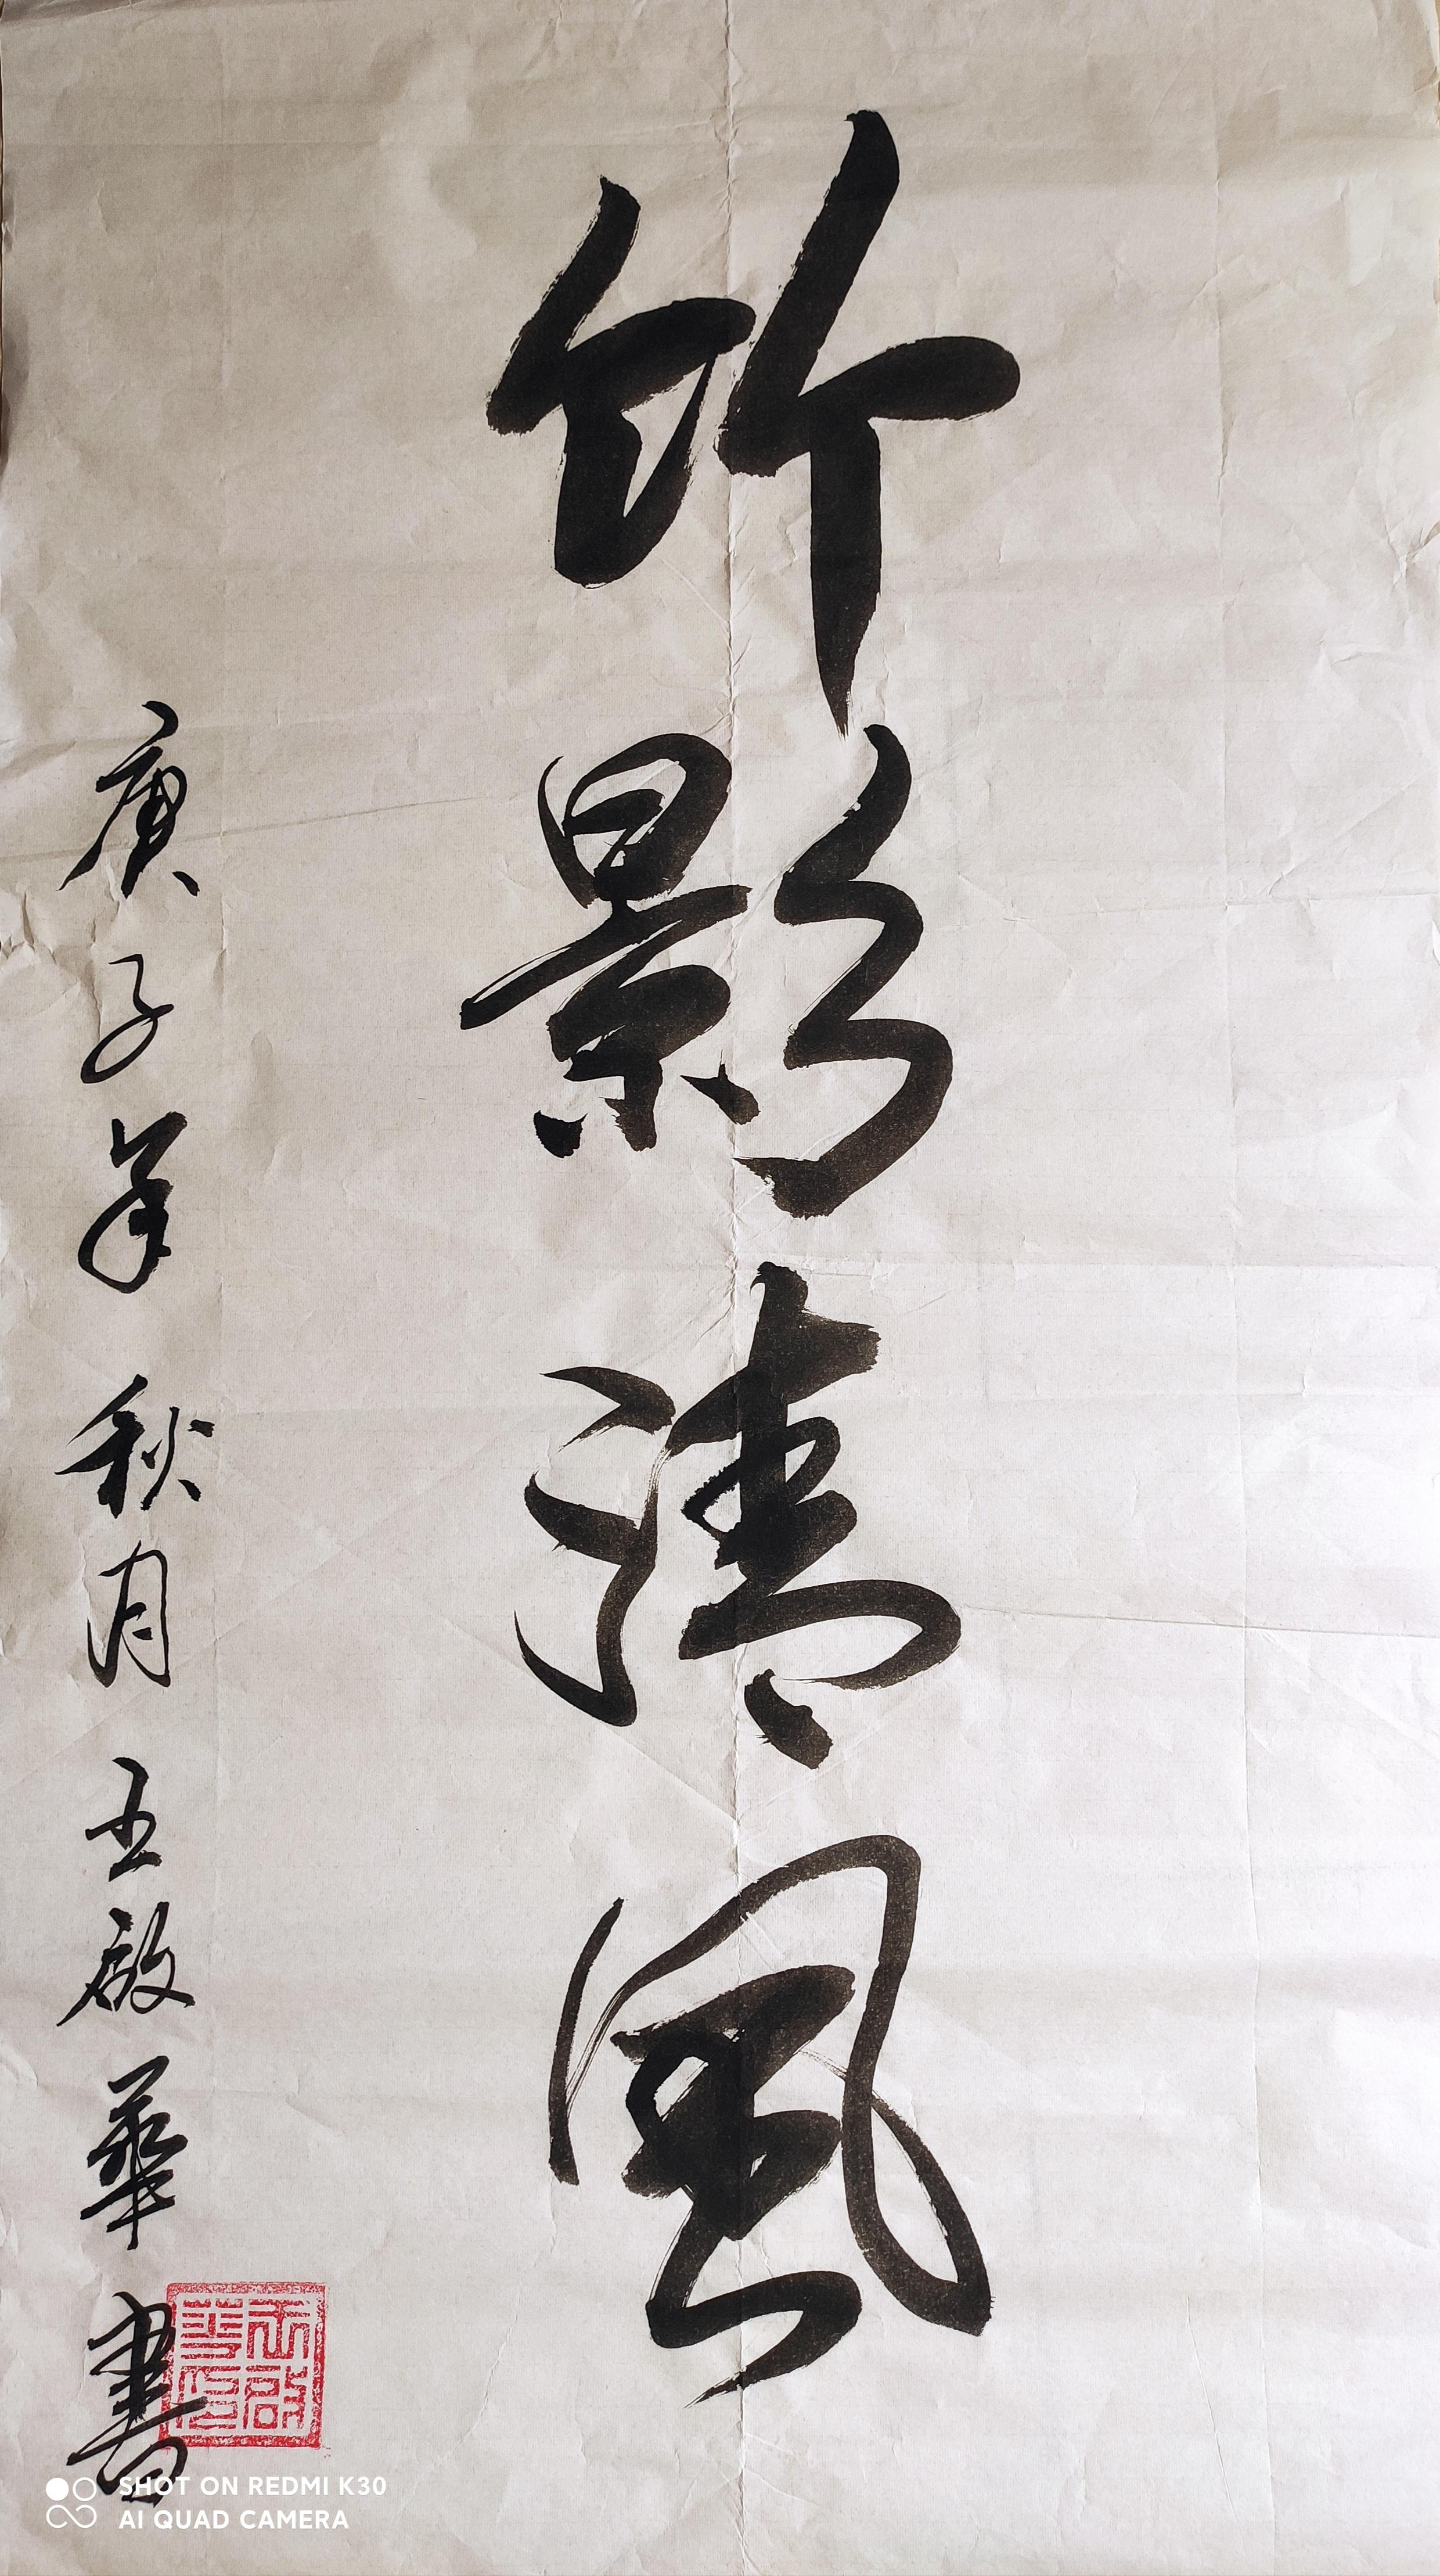 竹影清風
庚子年秋月王啟華書
王啟
華印
SHOT ON REDMI K30
AI QUAD CAMERA